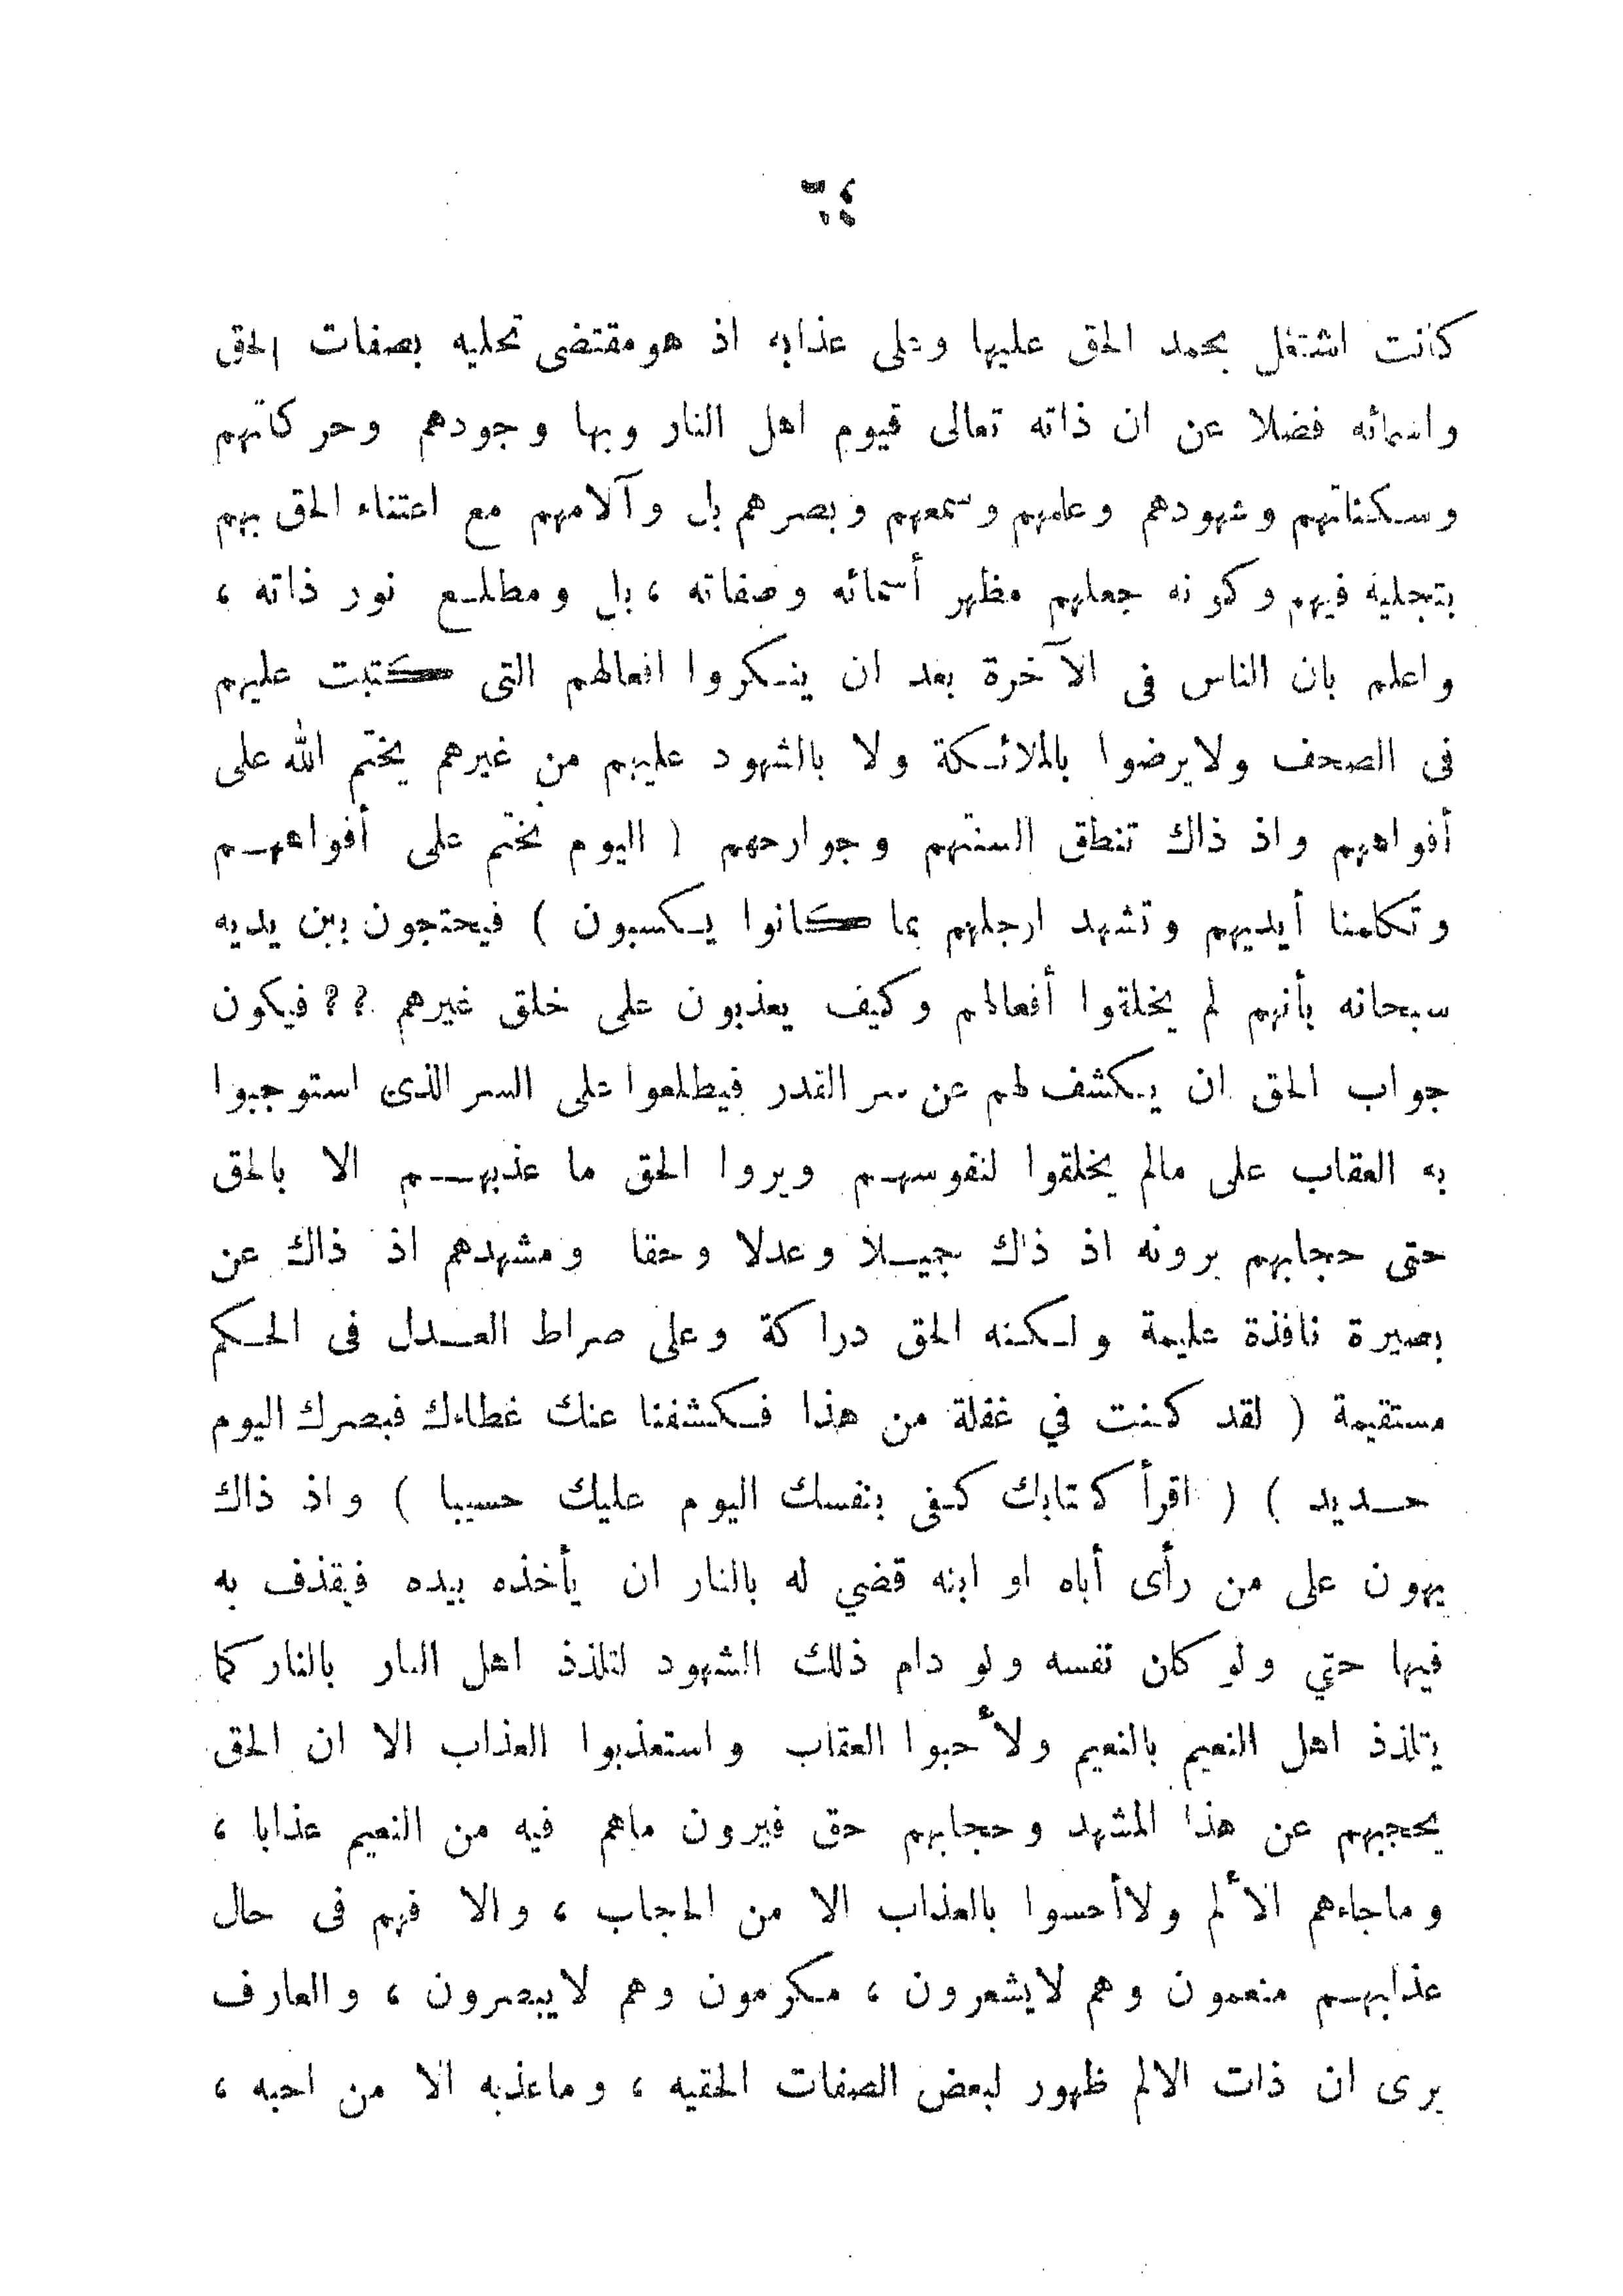 ٦٤
كانت اشتغل بحمد الحق عليها وعلى عذابه اذ هو مقتضى تحليه بصفات الحق
واسمائه فضلا عن ان ذاته تعالى قيوم اهل النار وبها وجودهم وحركاتهم
وسكناتهم وشهودهم وعلمهم وسمعهم وبصرهم بل وآلامهم مع اعتناء الحق بهم
بتجليه فيهم وكونه جعلهم مظهر أسمائه وصفاته ، بل ومطلع نور ذاته ،
واعلم بان الناس فى الآخرة بعد ان ينكروا افعالهم التى كتبت عليهم
فى الصحف ولا يرضوا بالملائكة ولا بالشهود عليهم من غيرهم يختم الله على
أفواههم واذ ذاك تنطق السنتهم وجوارحهم ( اليوم نختم على أفواههم
وتكلمنا أيديهم وتشهد ارجلهم بما كانوا يكسبون ) فيحتجون بين يديه
سبحانه بأنهم لم يخلقوا أفعالهم وكيف يعذبون على خلق غيرهم ؟؟ فيكون
جواب الحق ان يكشف لهم عن سر القدر فيطلعوا على السر الذى استوجبوا
به العقاب على مالم يخلقوا لنفوسهم ويروا الحق ما عذبهم الا بالحق
حتى حجابهم يرونه اذ ذاك جميلا وعدلا وحقا ومشهدهم اذ ذاك عن
بصيرة نافذة عليمة ولكنه الحق دراكة وعلى صراط العدل فى الحكم
مستقيمة ( لقد كنت في غفلة من هذا فكشفنا عنك غطاءك فبصرك اليوم
حديد ) ( اقرأ كتابك كفى بنفسك اليوم عليك حسيبا ) واذ ذاك
يهون على من رأى أباه او ابنه قضي له بالنار ان يأخذه بيده فيقذف به
فيها حتي ولو كان نفسه ولو دام ذلك الشهود لتلذذ اهل النار بالنار كما
يتلذذ اهل النعيم بالنعيم ولأحبوا العقاب واستعذبوا العذاب الا ان الحق
يحجبهم عن هذا المشهد وحجابهم حق فيرون ماهم فيه من النعيم عذابا ،
وماجاءهم الألم ولاأحسوا بالعذاب الا من الحجاب ، والا فهم فى حال
عذابهم منعمون وهم لايشعرون ، مكرمون وهم لايبصرون ، والعارف
يرى ان ذات الالم ظهور لبعض الصفات الحقيه ، وماعذبه الا من احبه ،